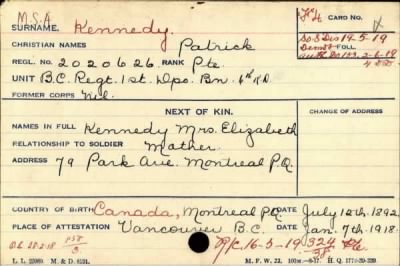 M.S.A.
SURNAME. Kennedy. CARD NO.
CHRISTIAN NAMES Patrick So.S. Dis 19-5-19
REGL. NO. 2020626 RANK Pte. FOLL.
UNIT B.C. Regt. 1st. Dpo. Bn.
FORMER CORPS Nil.
NEXT OF KIN. CHANGE OF ADDRESS
NAMES IN FULL Kennedy Mrs. Elizabeth
RELATIONSHIP TO SOLDIER Mother.
ADDRESS 79 Park Ave. Montreal P.Q.
COUNTRY OF BIRTH Canada, Montreal P.Q. DATE July 12th. 1892
PLACE OF ATTESTATION Vancouver B.C. DATE Jan. 7th. 1918.
O.L. 28-2-18 R/C. 16-5-19 324
L. L. 23089. M. & D. 6124. M. F. W. 22.